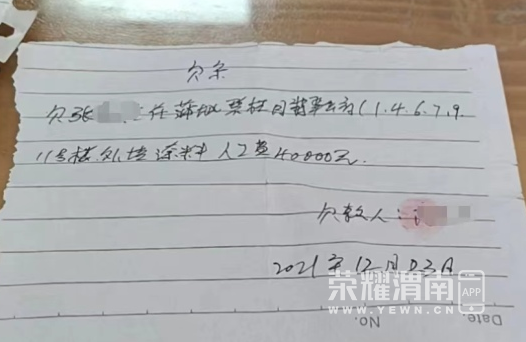 欠条
欠张 在蒲城 (1.4.6.7.9.
11号楼外墙涂料人工费40000元.
欠款人:
2021年12月03日
荣耀渭南 APP
WWW.YEWN.CN
Date.
No.